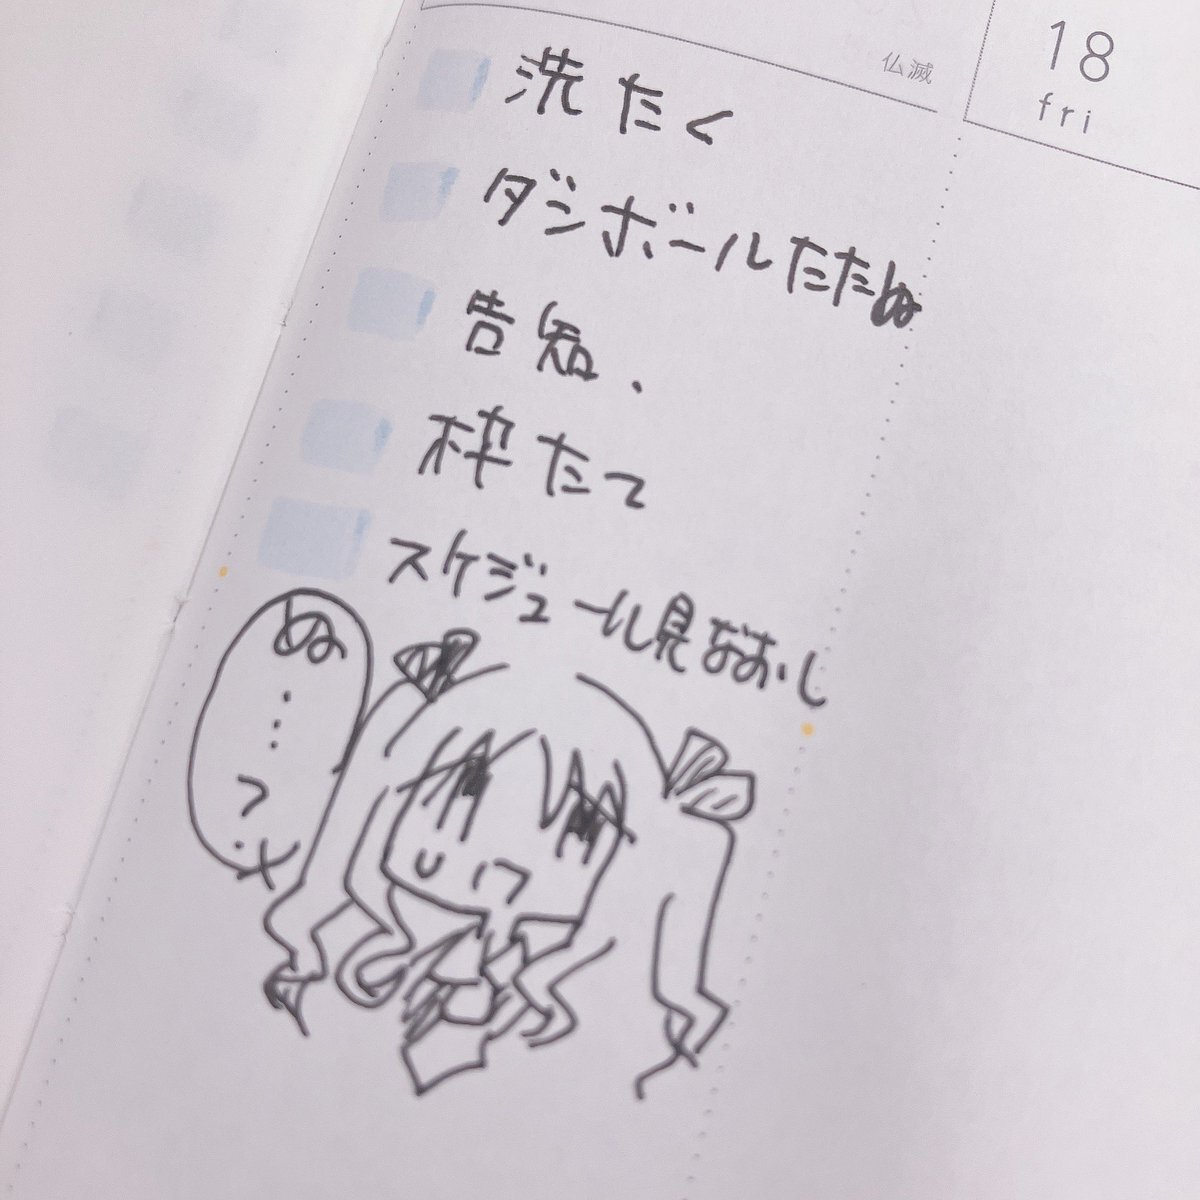 仏滅
18
fri
洗たく
ダンボールたたぬ
告知、
枠たて
スケジュール見なおし
ぬ…?